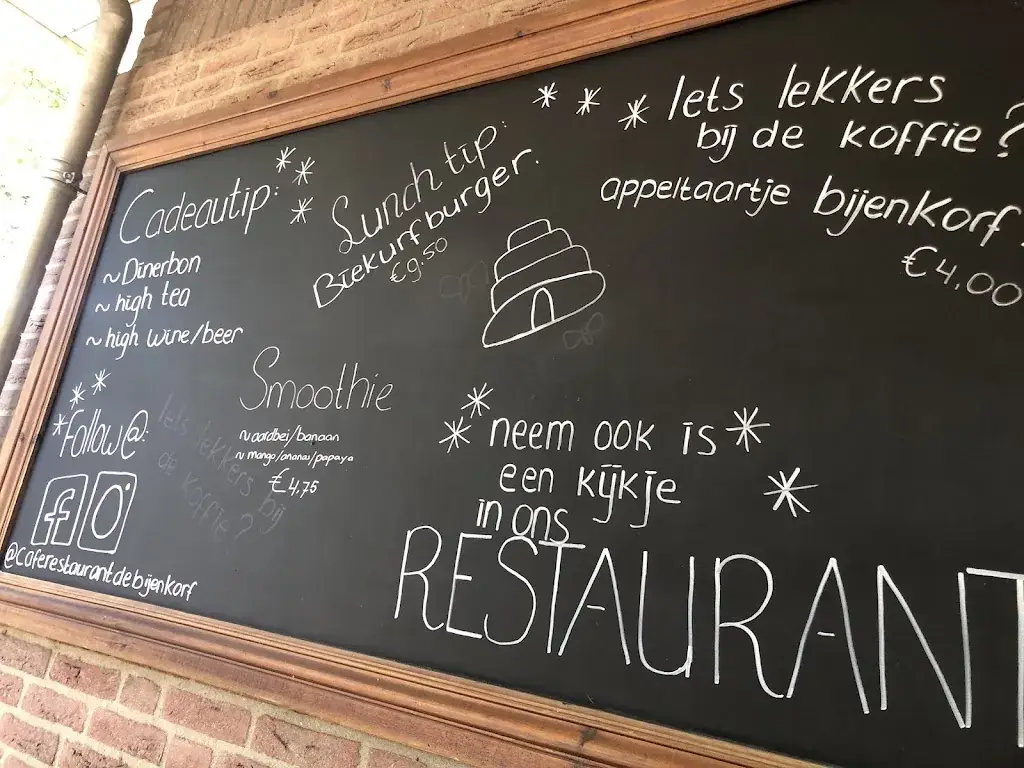 Cadeautip:
~ Dinerbon
~ high tea
~ high wine/beer
Lunch tip:
Biekurfburger.
€9.50
Iets lekkers
bij de koffie?
appeltaartje bijenkorf
€4,00
Smoothie
~ aardbei/banaan
~ mango/ananas/papaya
€4,75
Follow@:
@caferestaurantdebijenkorf
Iets lekkers bij
de koffie?
neem ook is
een kijkje
in ons
RESTAURANT